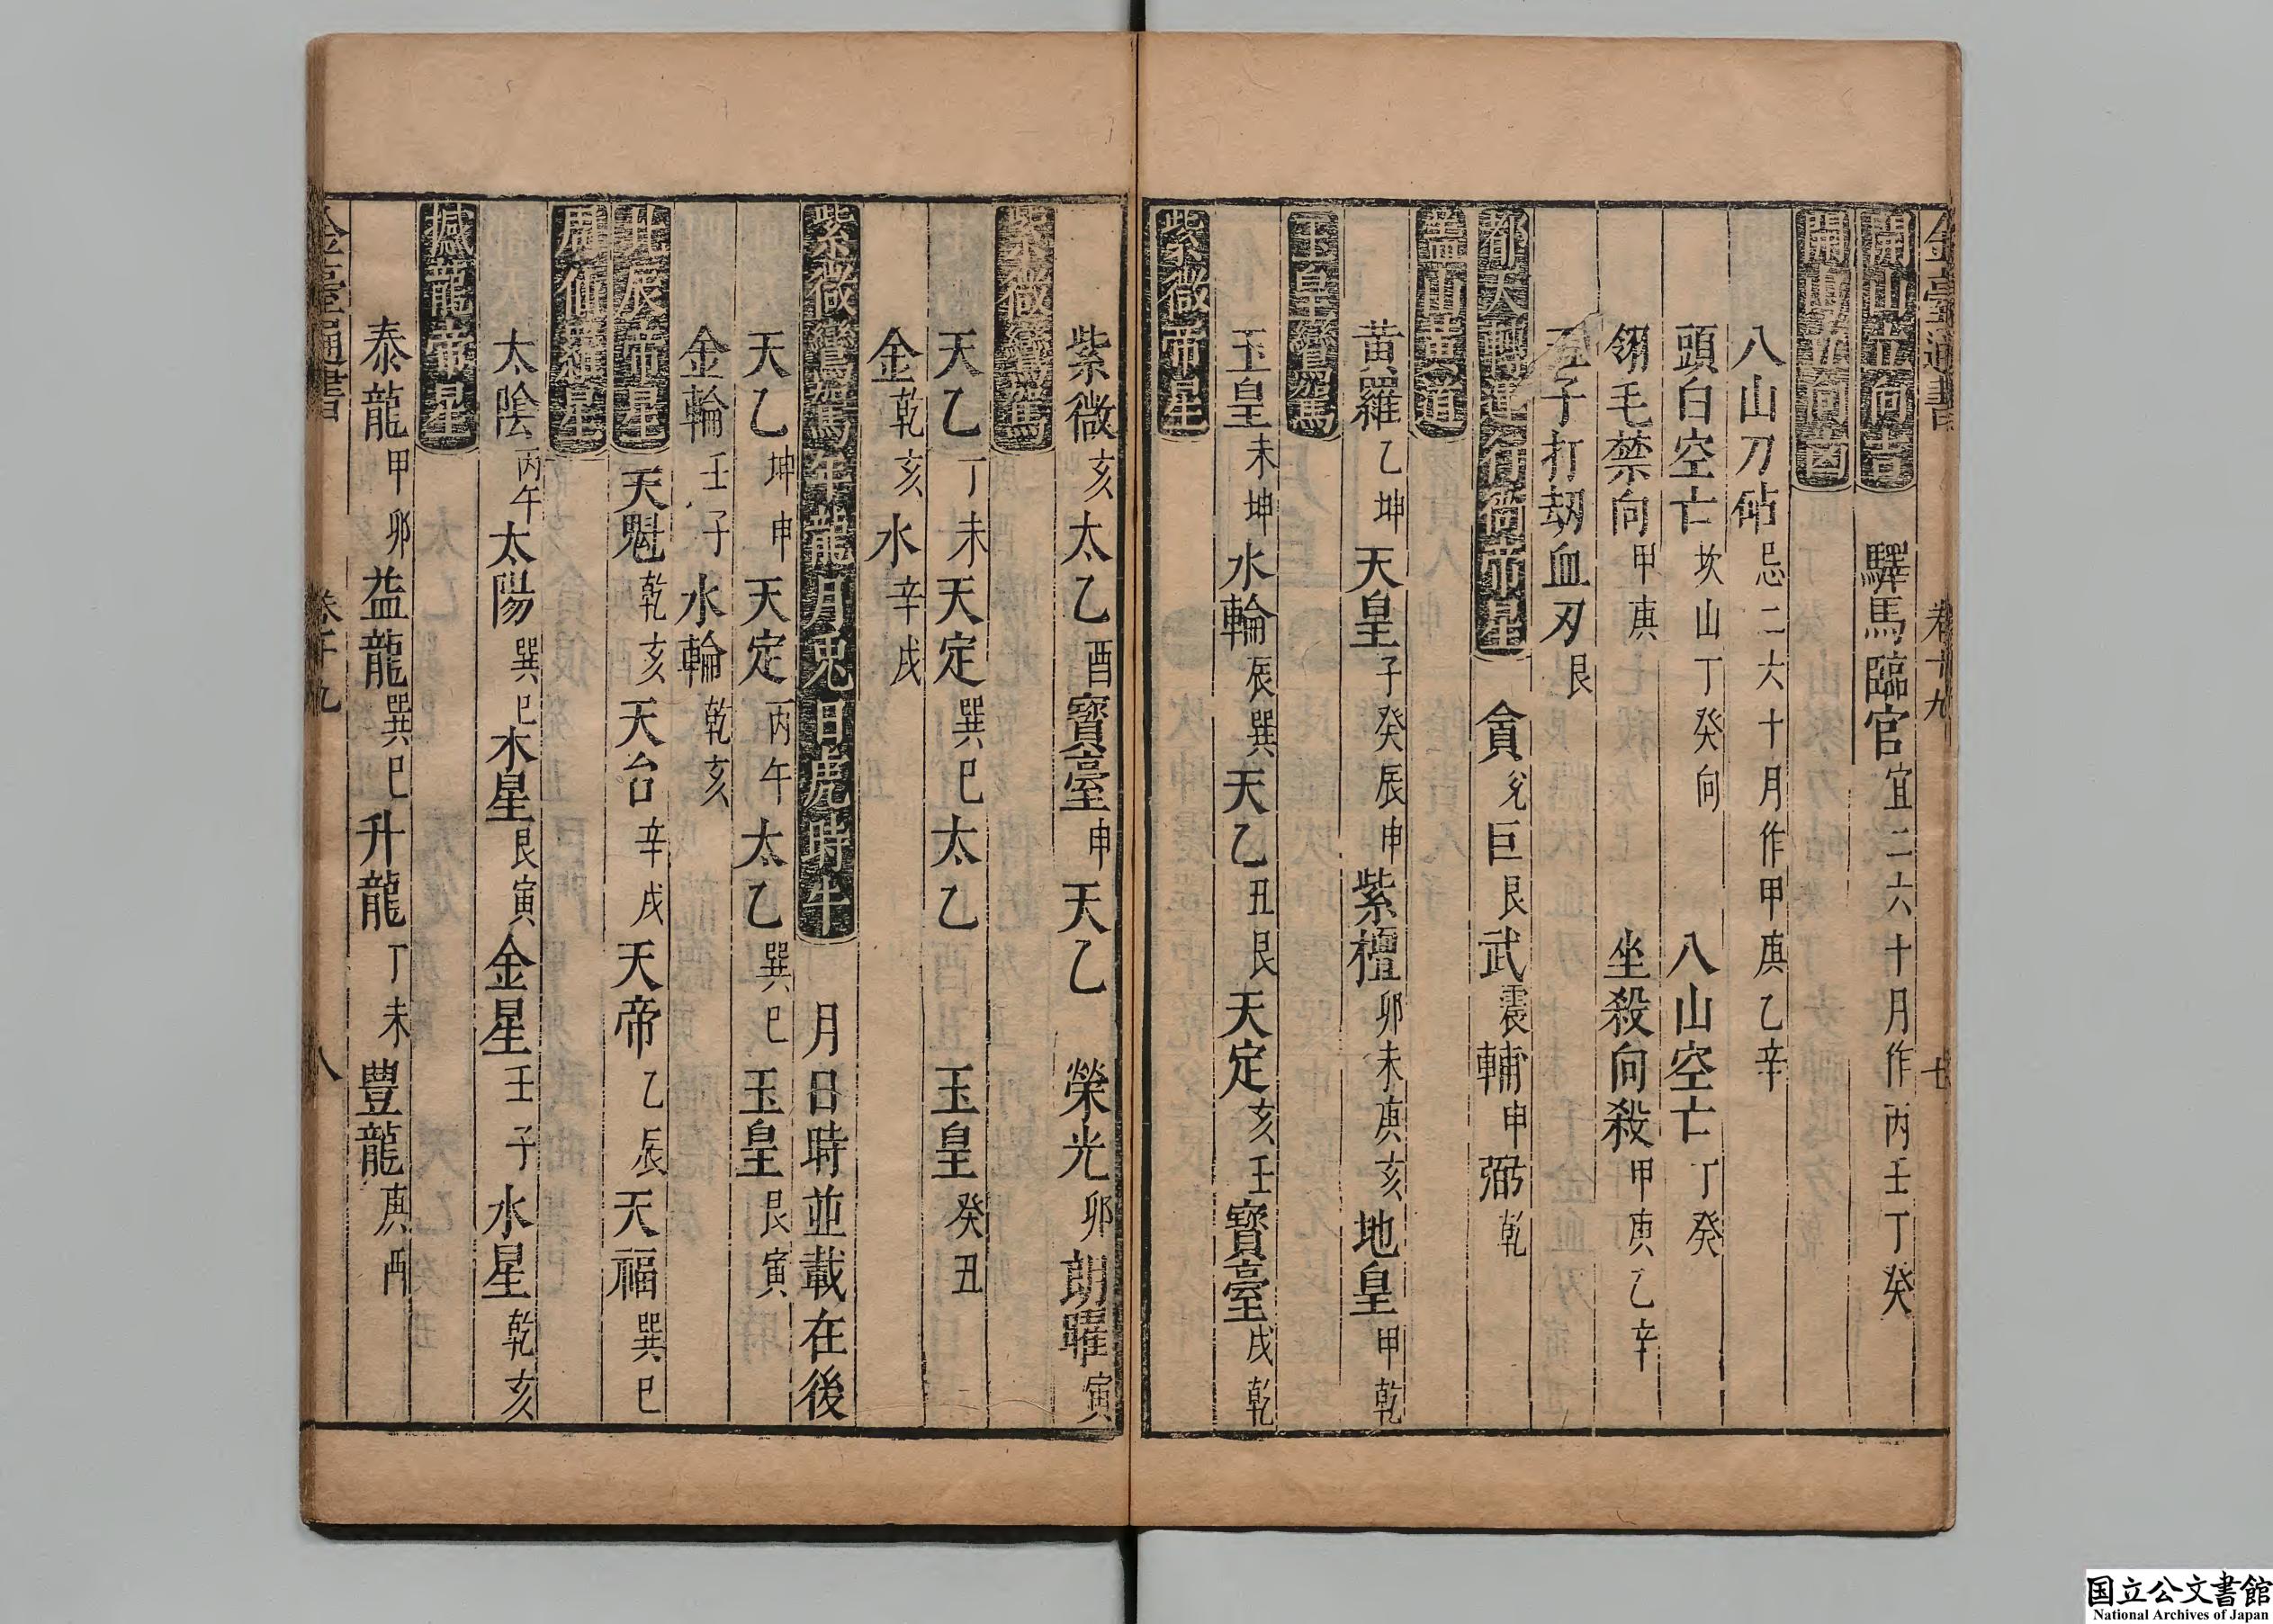 金臺通書　卷十九　七
開山立向吉　驛馬臨官宜二六十月作丙壬丁癸
開山立向凶
八山刀砧忌二六十月作甲庚乙辛
頭白空亡坎山丁癸向　八山空亡丁癸
翎毛禁向甲庚　坐殺向殺甲庚乙辛
五子打劫血刃艮
都天轉運行衙帝星　貪兌巨艮武震輔申弼乾
蓋山黄道
黄羅乙坤天皇子癸辰申紫檀卯未庚亥地皇甲乾
玉皇鑾駕
玉皇未坤水輪辰巽天乙丑艮天定亥壬寳臺戌乾
紫微帝星
紫微亥太乙酉寳臺申天乙　榮光卯朗曜寅
紫微鑾駕
天乙丁未天定巽巳太乙　玉皇癸丑
金乾亥水辛戌
紫微鑾駕年龍月兎日虎時牛　月日時並載在後
天乙坤申天定丙午太乙巽巳玉皇艮寅
金輪壬子水輪乾亥
北辰帝星　天魁乾亥天台辛戌天帝乙辰天福巽巳
周仙羅星
太陰丙午太陽巽巳木星艮寅金星壬子水星乾亥
撼龍帝星
泰龍甲卯益龍巽巳升龍丁未豊龍庚丙
金臺通書　卷十九　八
国立公文書館
National Archives of Japan